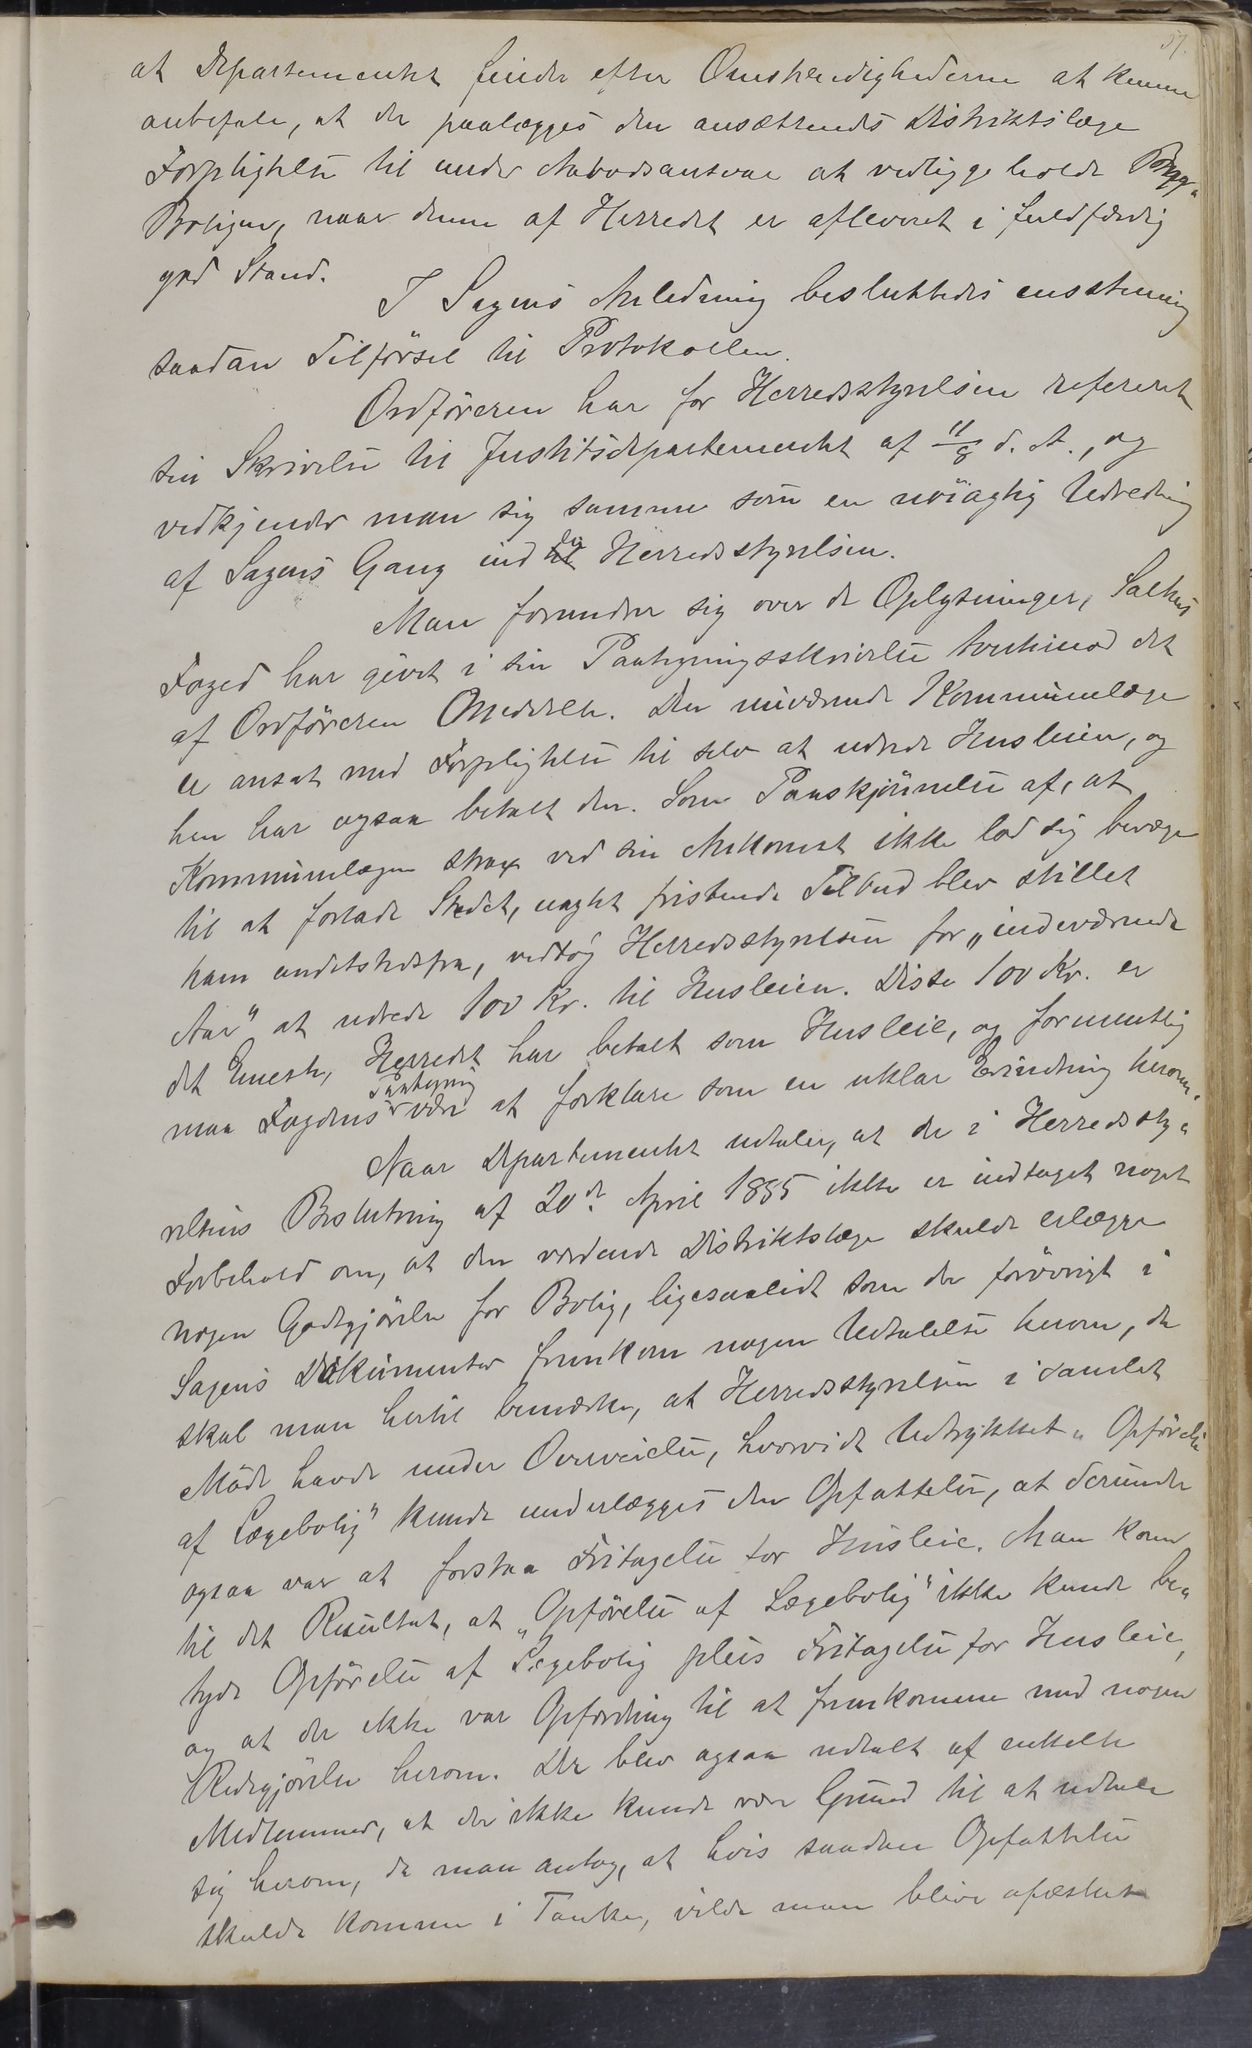 37.
at Departementet finder efter Omstændighederne at kunne
anbefale, at der paalægges den ansættendes Distriktslæge
Forpligtelse til under Aabodsansvar at vedligeholde
Boligen, naar denne af Herredet er afleveret i fuldfærdig
god Stand.
I Sagens Anledning besluttedes enstemmig
saadan Tilførsel til Protokollen.
Ordføreren har for Herredsstyrelsen refereret
sin Skrivelse til Justitsdepartementet af 11/8 d. A., og
vedkjender man sig samme som en nøiagtig Udredning
af Sagens Gang ind for Herredsstyrelsen.
Man forundrer sig over de Oplysninger, Saltens
Foged har givet i sin Paategningsskrivelse tvertimod det
af Ordføreren Meddelte. Den nuværende Kommunelæge
er ansat med Forpligtelse til selv at udrede Husleien, og
han har ogsaa betalt den. Som Paaskjønnelse af, at
Kommunelægen strax ved sin Ankomst ikke lod sig bevæge
til at forlade Stedet, uagtet fristende Tilbud blev stillet
ham andetstedsfra, vedtog Herredsstyrelsen for „indeværende
Aar" at udrede 100 Kr. til Husleien. Disse 100 Kr. er
det Eneste, Herredet har betalt som Husleie, og formentlig
maa Fogdens Paategning være at forklare som en uklar Erindring herom.
Naar Departementet udtaler, at der i Herredssty-
relsens Beslutning af 20de April 1885 ikke er indtaget noget
Forbehold om, at den vordende Distriktslæge skulde erlægge
nogen Godtgjørelse for Bolig, ligesaalidt som der forøvrigt i
Sagens Dokumenter fremkom nogen Udtalelse herom, da
skal man hertil bemærke, at Herredsstyrelsen i samlet
Møde havde under Overveielse, hvorvidt Udtrykket „Opførelse
af Lægebolig" kunde underlægges den Opfattelse, at derunder
ogsaa var at forstaa Fritagelse for Husleie. Man kom
til det Resultat, at „Opførelse af Lægebolig" ikke kunde be-
tyde Opførelse af Lægebolig plus Fritagelse for Husleie,
og at der ikke var Opfordring til at fremkomme med nogen
Redegjørelse herom. Der blev ogsaa udtalt af enkelte
Medlemmer, at der ikke kunde være Grund til at udtale
sig herom, da man antog, at hvis saadan Opfattelse
skulde komme i Tanke, vilde man blive afæsket